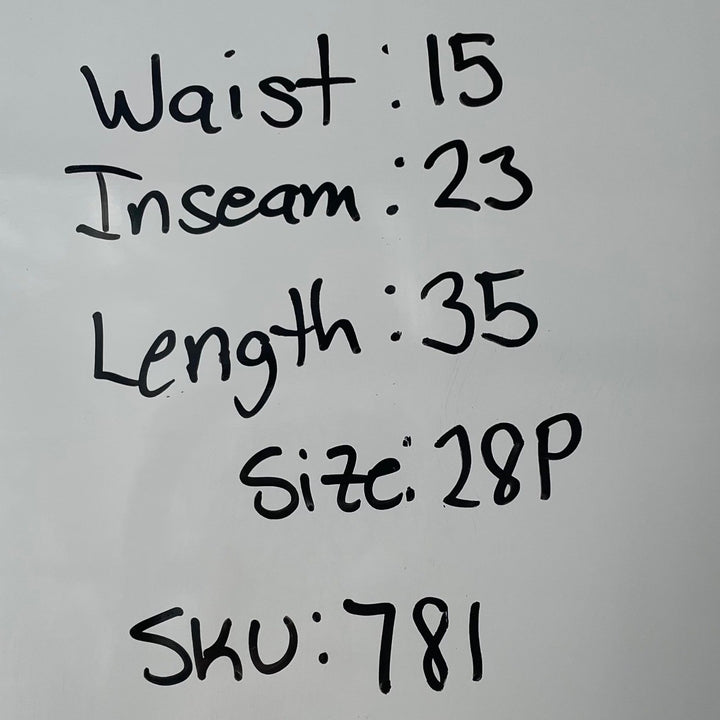 Waist: 15
Inseam: 23
Length: 35
Size: 28P
SKU: 781